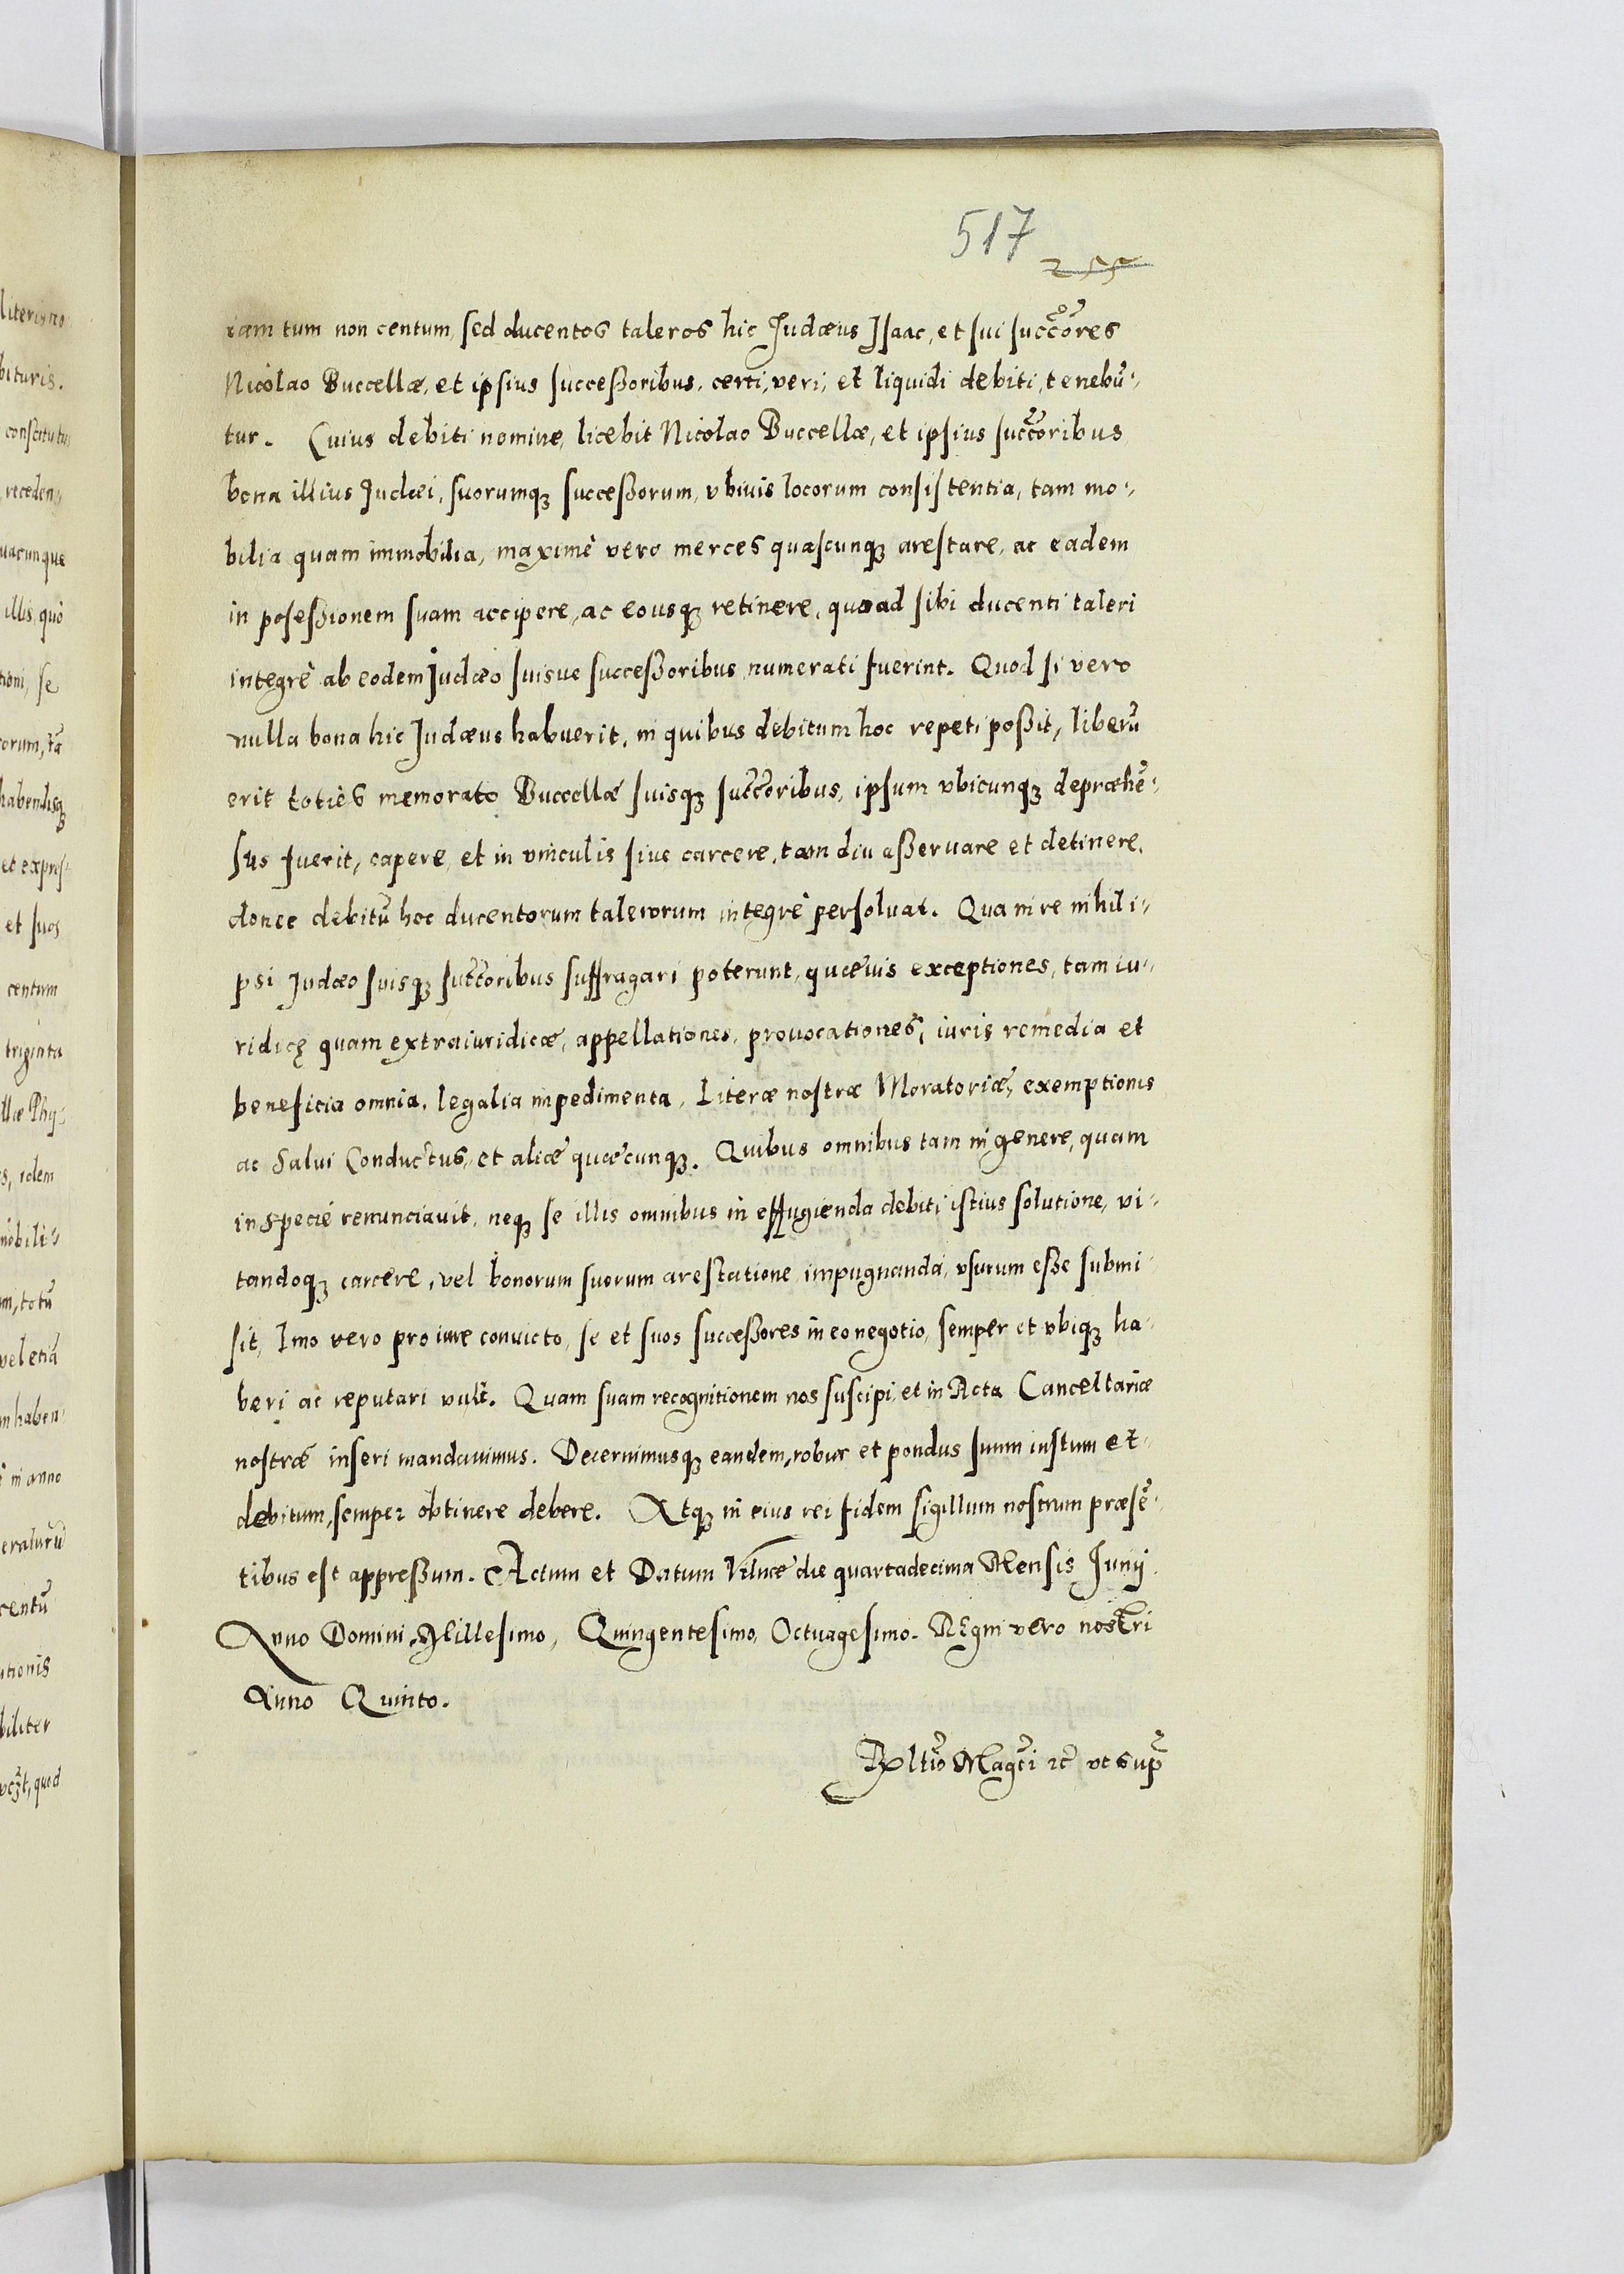 517
255
iam tum non centum, sed ducentos taleros hic Judæus Jsaac, et sui succ̃ores
Nicolao Buccellæ, et ipsius successoribus, certi, veri, et liquidi debiti, tenebũ-
tur. Cuius debiti nomine, licebit Nicolao Buccellæ, et ipsius succ̃oribus
bona illius Judæi, suorumqꝫ successorum, vbiuis locorum consistentia, tam mo-
bilia quam immobilia, maximè vero merces quascunqꝫ arestare, ac eadem
in posessionem suam accipere, ac eousqꝫ retinere, quoad sibi ducenti taleri
integrè ab eodem Judæo suisue successoribus numerati fuerint. Quod si vero
nulla bona hic Judæus habuerit, in quibus debitum hoc repeti possit, liberũ
erit toties memorato Buccellæ suisqꝫ succ̃oribus, ipsum vbicunqꝫ depræhẽ-
sus fuerit, capere, et in vinculis siue carcere, tam diu asseruare et detinere,
donec debitũ hoc ducentorum talerorum integrè persoluat. Qua in re nihil i-
psi Judæo suisqꝫ succ̃oribus suffragari poterunt, quæuis exceptiones, tam iu-
ridicę quam extraiuridicæ, appellationes, prouocationes, iuris remedia et
beneficia omnia, legalia impedimenta, Literæ nostræ Moratoriæ, exemptionis
ac Salui Conductus, et aliæ quæcunqꝫ. Quibus omnibus tam in genere, quam
in specie renunciauit, neqꝫ se illis omnibus in effugienda debiti istius solutione, vi-
tandoqꝫ carcere, vel bonorum suorum arestatione impugnanda, vsurum esse submi-
sit, Imo vero pro iure conuicto, se et suos successores in eo negotio, semper et vbiqꝫ ha-
beri ac reputari vult. Quam suam recognitionem nos suscipi, et in Acta Cancellariæ
nostræ inseri mandauimus. Decernimusqꝫ eandem, robur et pondus suum iustum et
debitum, semper obtinere debere. Atqꝫ in eius rei fidem sigillum nostrum præsẽ-
tibus est appressum. Actum et Datum Vilnæ die quartadecima Mensis Junij.
Anno Domini, Millesimo, Quingentesimo, Octuagesimo. REgni vero nostri
Anno Quinto.
Rltio Magci ꝛc̃ vt sup